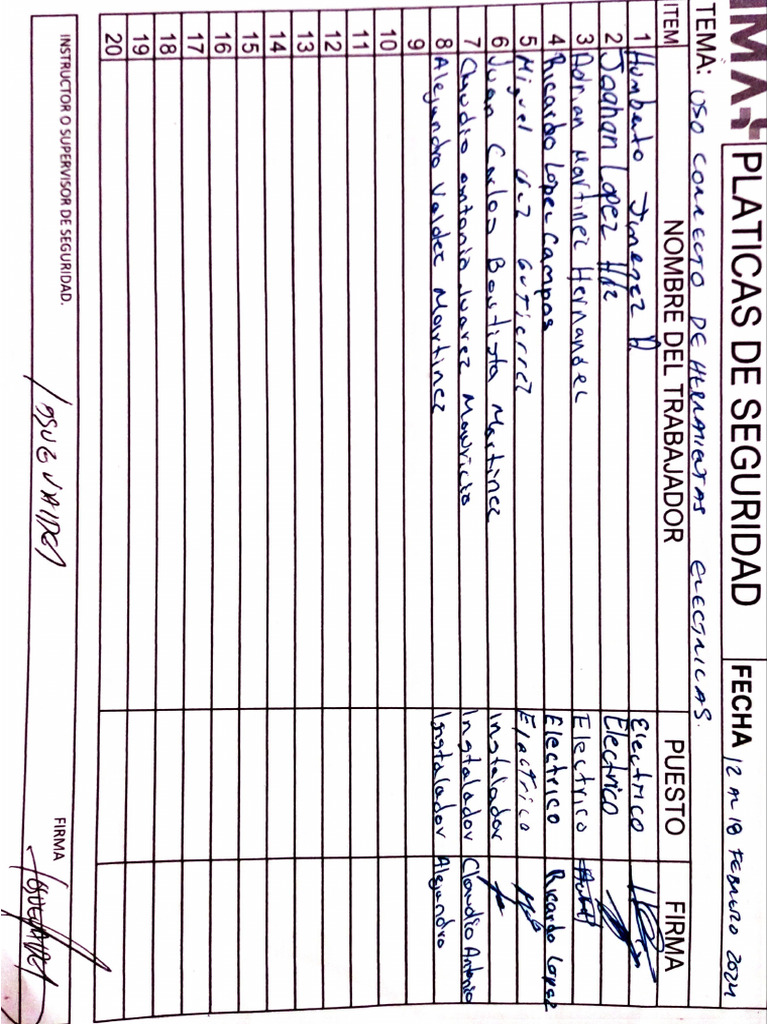 IMA+ PLATICAS DE SEGURIDAD FECHA 12 AL 18 FEBRERO 2024
TEMA: USO CORRECTO DE HERRAMIENTAS ELECTRICAS.
ITEM NOMBRE DEL TRABAJADOR PUESTO FIRMA
1 Humberto Jimenez D. Electrico
2 Joahan Lopez Hdz Electrico
3 Adrian Martinez Hernandez Electrico
4 Ricardo Lopez Campos Electrico Ricardo Lopez
5 Miguel Cruz Gutierrez Electrico
6 Juan Carlos Bautista Martinez Instalador
7 Claudio Antonio Juarez Mauricio Instalador Claudio Antonio
8 Alejandro Valdez Martinez Instalador Alejandro
9
10
11
12
13
14
15
16
17
18
19
20
INSTRUCTOR O SUPERVISOR DE SEGURIDAD. FIRMA